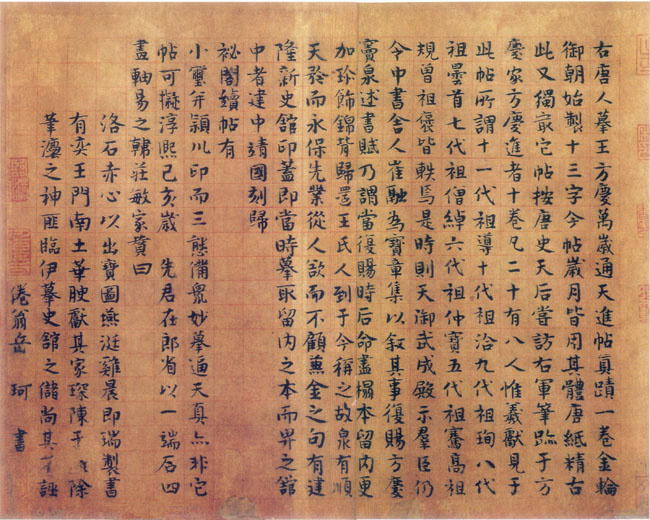 右唐人摹王方慶萬歲通天進帖真蹟一卷金輪
御朝始製十三字今帖歲月皆用其體唐紙精古
此又獨最它帖按唐史天后嘗訪右軍筆跡于方
慶家方慶進者十卷凡二十有八人惟羲獻見于
此帖所謂十一代祖導十代祖洽九代祖珣八代
祖曇首七代祖僧綽六代祖仲寶五代祖騫高祖
規曾祖褒皆軼焉是時則天御武成殿示羣臣仍
令中書舍人崔融為寶章集以叙其事復賜方慶
竇泉述書賦乃謂當復賜時后命盡搨本留內更
加珍飾錦背歸還王氏人到于今稱之故泉有順
天矜而永保先業從人欲而不顧兼金之句有建
隆新史館印蓋即當時摹取留內之本而畀之館
中者建中靖國刻歸
祕閣續帖有
小璽并潁川印而三態備衆妙摹逼天真亦非它
帖可擬淳熙己亥歲 先君在郎省以一端石四
畫軸易之韓莊敏家贊曰
洛石赤心以出寶圖燕涎雞晨即瑞製書
有奕王門南土華腴獻其家琛陳于 除
筆瀍之神匪臨伊摹史館之儲尚其 誣
倦翁岳 珂 書